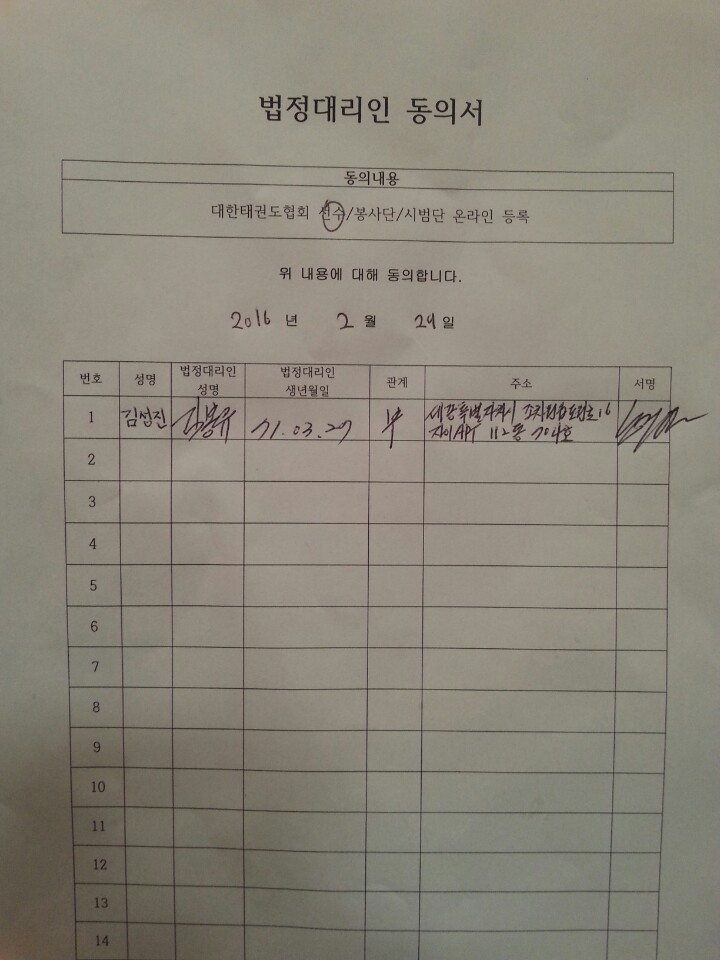 법정대리인 동의서
동의내용
대한태권도협회 선수/봉사단/시범단 온라인 등록
위 내용에 대해 동의합니다.
2016 년 2 월 24 일
번호 성명 법정대리인 성명 법정대리인 생년월일 관계 주소 서명
1 김성진 김봉유 71.03.27 부 세종특별자치시 조치원읍 16
자이APT 112동 704호
2
3
4
5
6
7
8
9
10
11
12
13
14